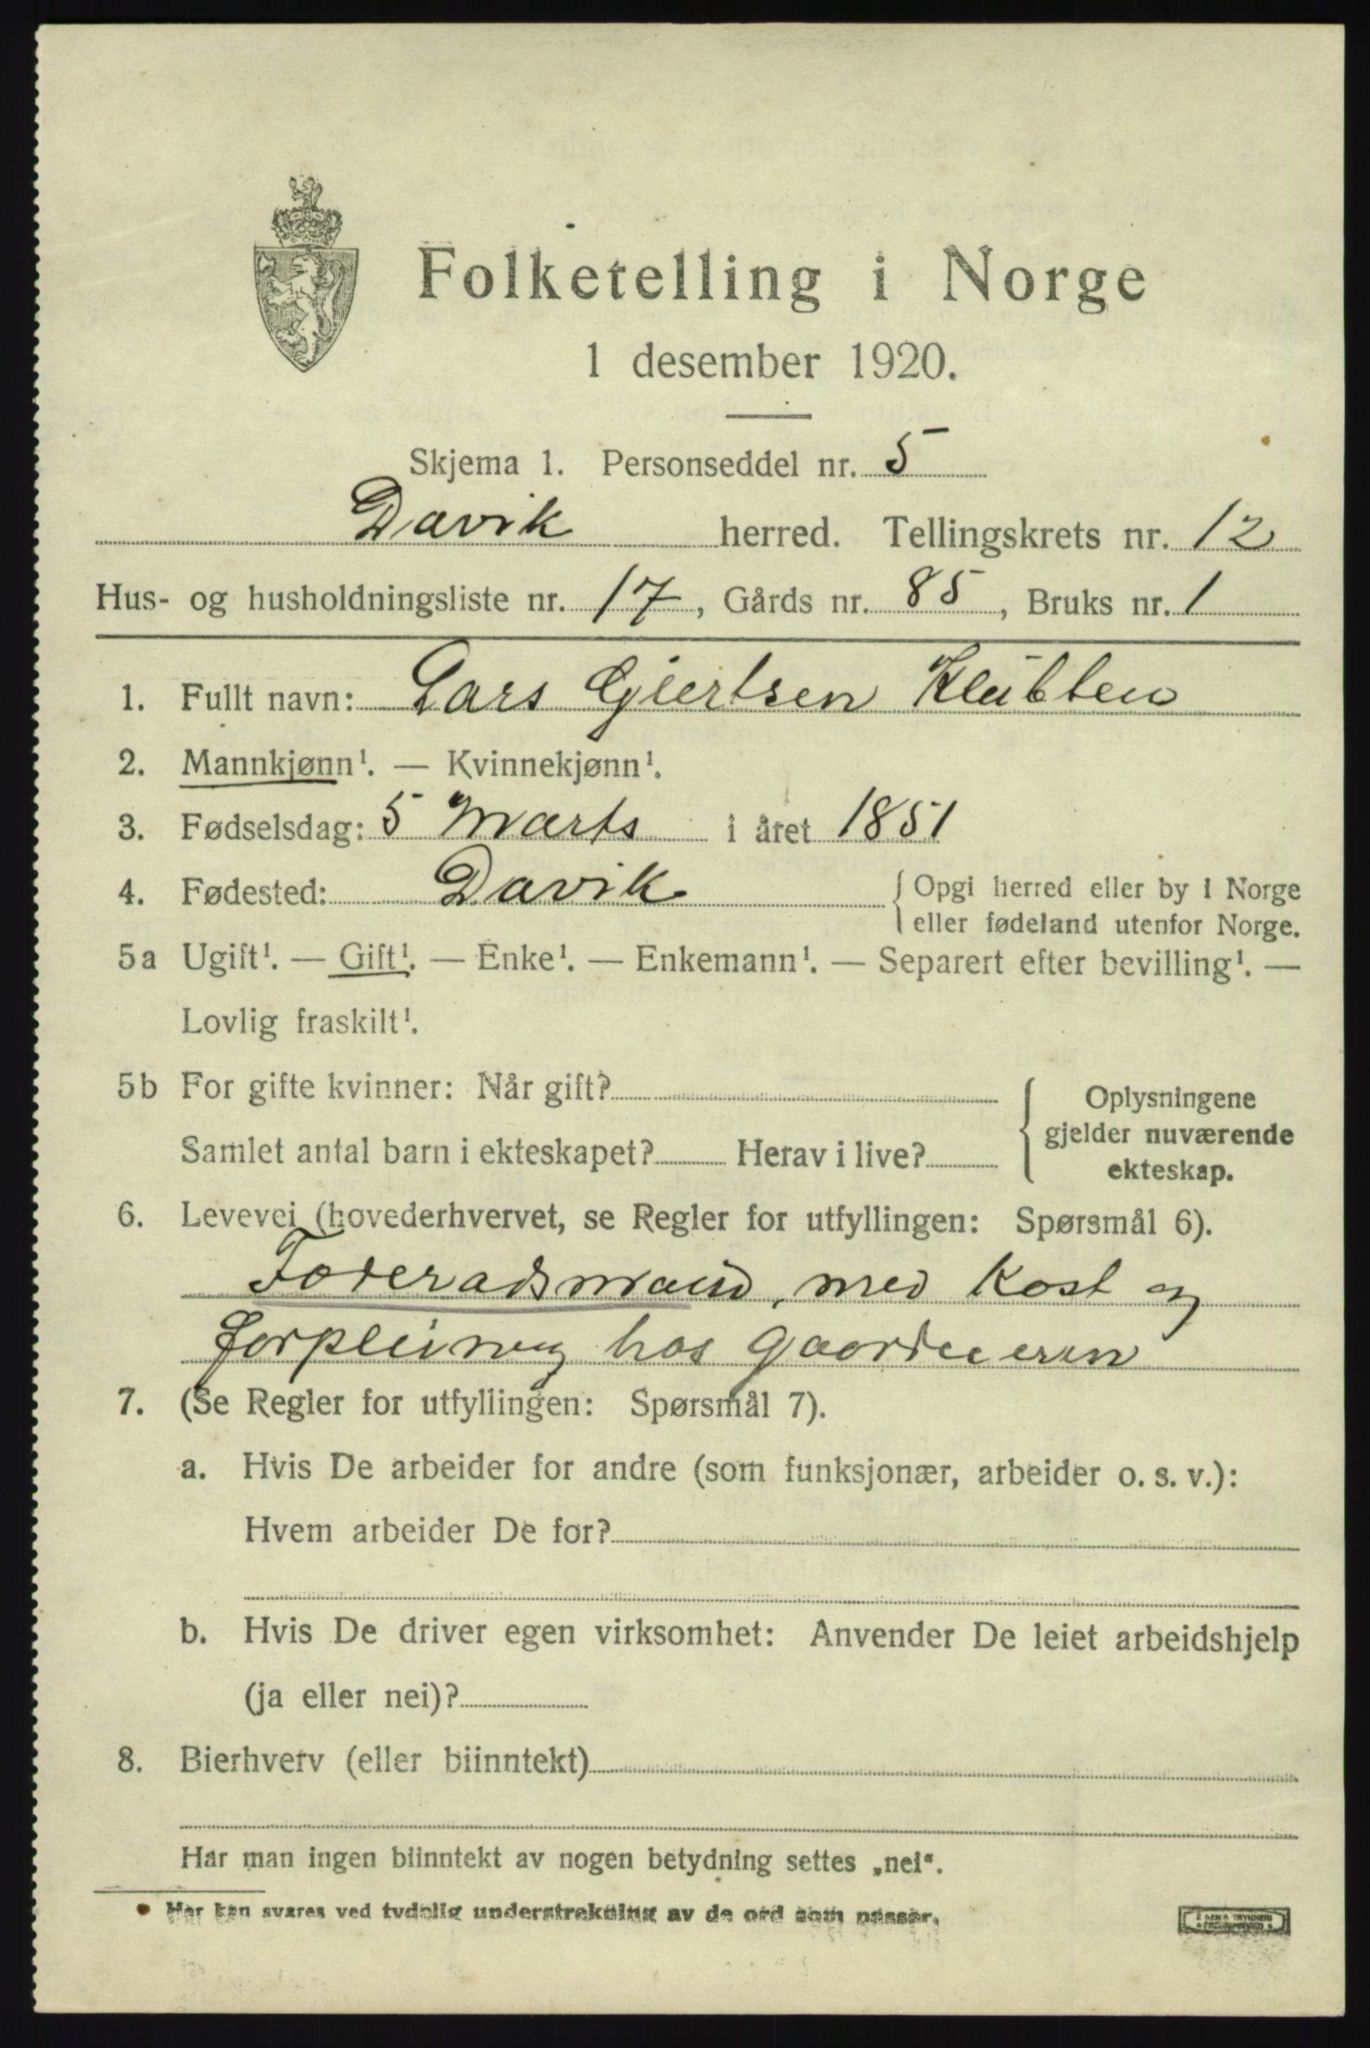 Folketelling i Norge
1 desember 1920.
Skjema 1. Personseddel nr. 5
Davik herred. Tellingskrets nr. 12
Hus- og husholdningsliste nr. 17, Gårds nr. 85, Bruks nr. 1
1. Fullt navn: Lars Gjertsen Klubben
2. Mannkjønn¹. — Kvinnekjønn¹.
3. Fødselsdag: 5 Marts i året 1851
4. Fødested: Davik {Opgi herred eller by i Norge
eller fødeland utenfor Norge.
5a Ugift¹. — Gift¹. — Enke¹. — Enkemann¹. — Separert efter bevilling¹. —
Lovlig fraskilt¹.
5b For gifte kvinner: Når gift?
Samlet antal barn i ekteskapet? Herav i live?
{Oplysningene
gjelder nuværende
ekteskap.
6. Levevei (hovederhvervet, se Regler for utfyllingen: Spørsmål 6).
Føderadsmand, med Kost og
forpleining hos
7. (Se Regler for utfyllingen: Spørsmål 7).
a. Hvis De arbeider for andre (som funksjonær, arbeider o. s. v.):
Hvem arbeider De for?
b. Hvis De driver egen virksomhet: Anvender De leiet arbeidshjelp
(ja eller nei)?
8. Bierhverv (eller biinntekt)
Har man ingen biinntekt av nogen betydning settes „nei“.
• Her kan svares ved tydelig understrekning av de ord som passer.